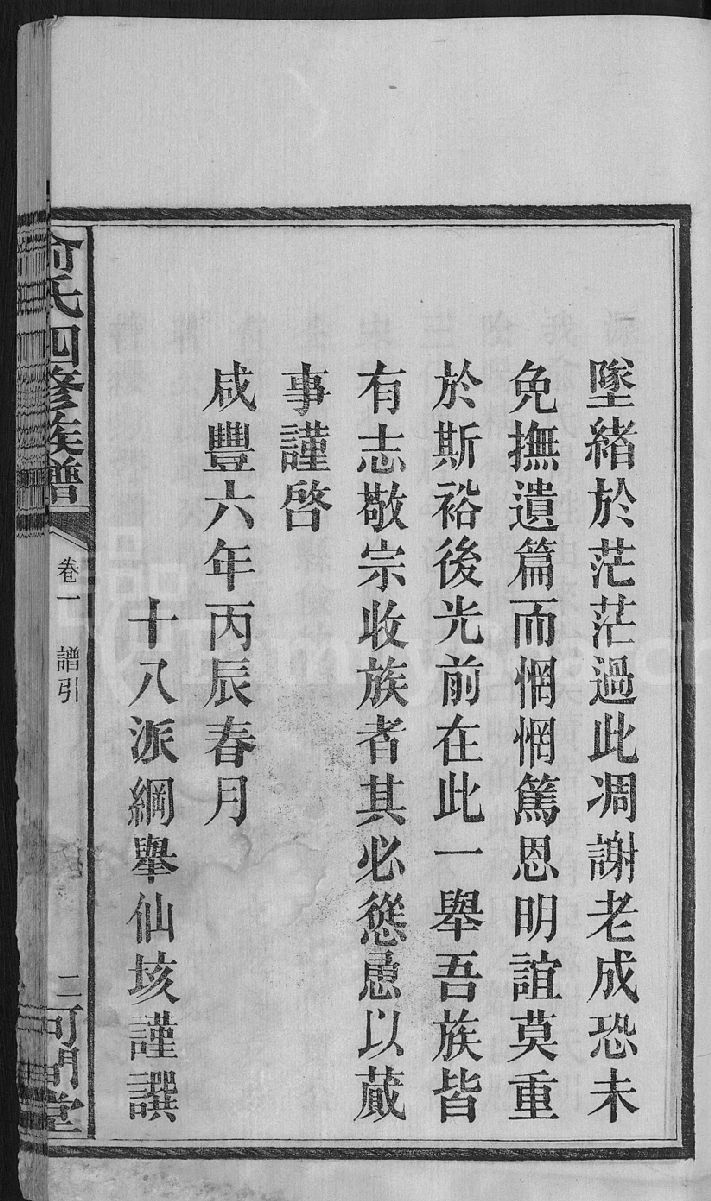 墜緒於茫茫過此凋謝老成恐未
免撫遺篇而惘惘篤恩明誼莫重
於斯裕後光前在此一舉吾族皆
有志敬宗收族者其必慫恿以蕆
事謹啓
咸豐六年丙辰春月
十八派綱舉仙垓謹譔
俞氏四修族譜
卷一 譜引
二
河間堂